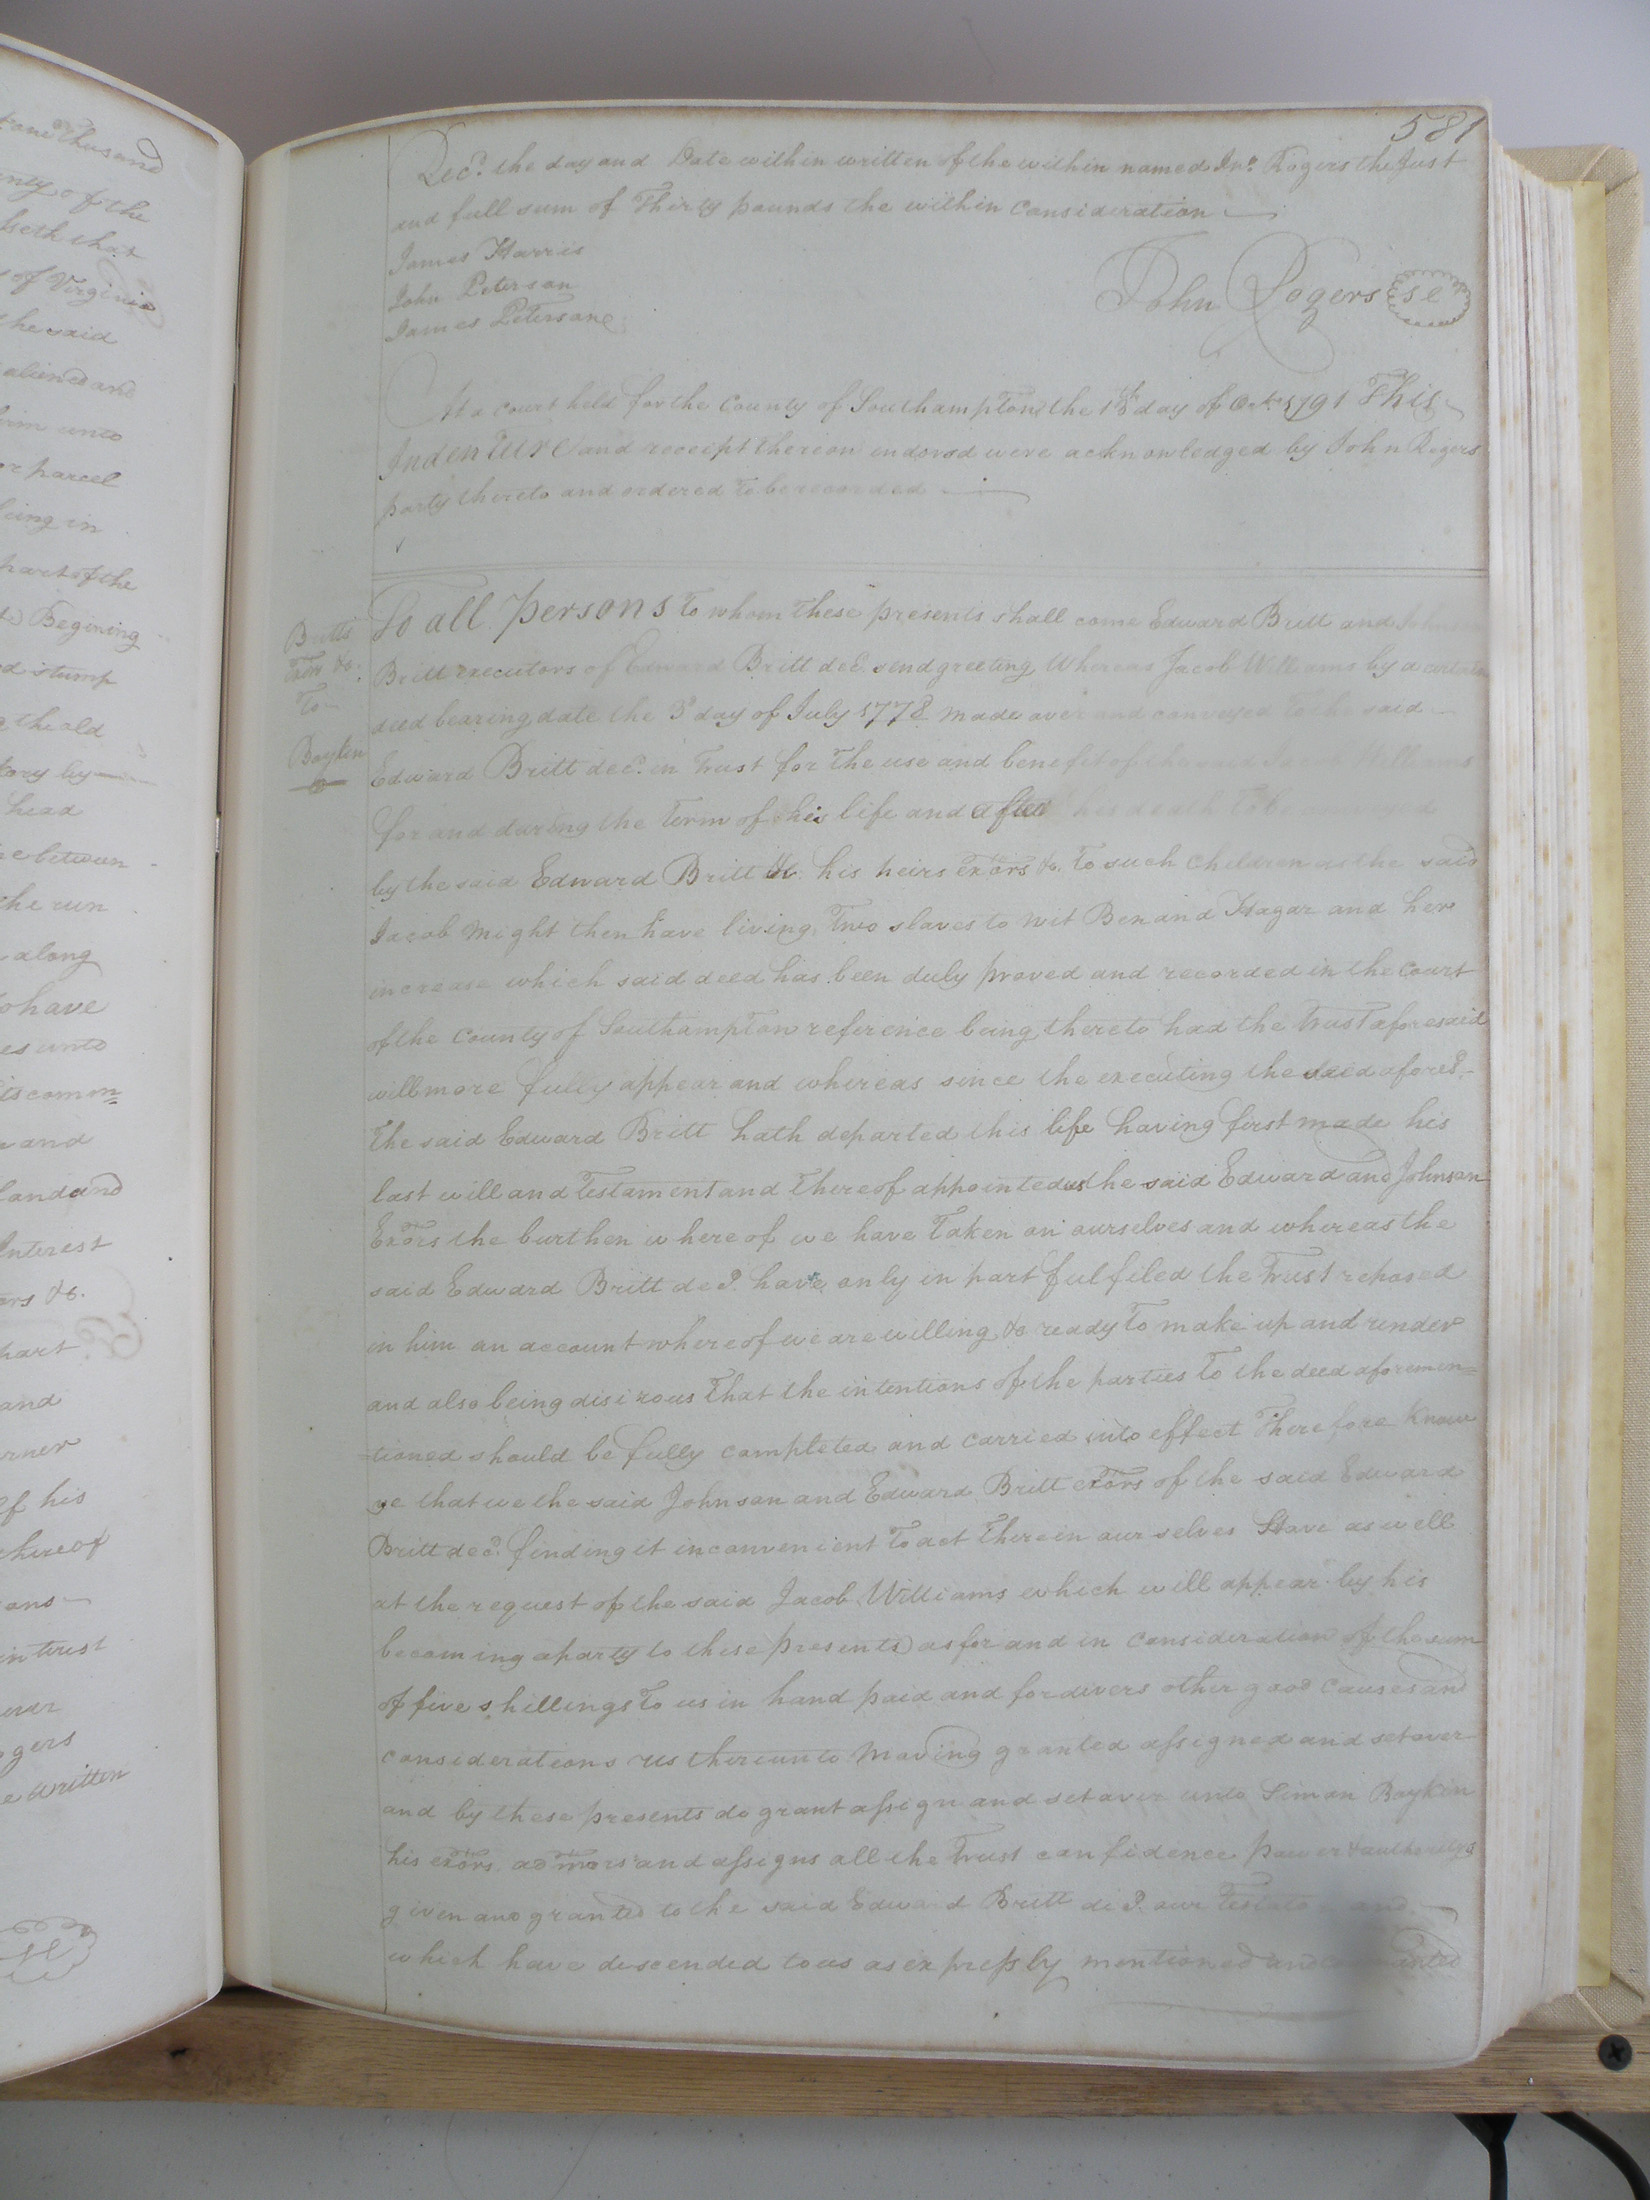 tand Thusand
nty of the
seth that
of Virginia
the said
aliened and
him unto
or parcel
being in
part of the
Begining
d stump
the old
tory by
head
e betwen
the run
along
to have
es unto
is comm=
and
land and
Interest
ors &c.
part
and
orner
of his
thereof
ans
in trust
ogers
e written
581
Rec.d the day and Date within written of the within named Jn.o Rogers the Just
and full sum of Thirty pounds the within Consideration
James Harris
John Peterson
John Rogers se
James Petersone
At a court held for the County of Southampton the 13th day of Oct. 1791 This
Indenture and receipt thereon endorsd were acknowledged by John Rogers
party thereto and ordered to be recorded
Britts
Exor &c.
To
Boykin
To all persons to whom these presents shall come Edward Britt and Johnson
Britt executors of Edward Britt decd. send greeting Whereas Jacob Williams by a certain
deed bearing date the 3d day of July 1778 made over and conveyed to the said
Edward Britt decd. in trust for the use and benefit of the said Jacob Williams
for and daring the term of his life and after his death to be conveyed
by the said Edward Britt &c. his heirs exors &c. to such Children as the said
Jacob might then have living, Two slaves to wit Ben and Hagar and her
increase which said deed has been duly proved and recorded in the Court
of the County of Southampton reference being thereto had the trust aforesaid
will more fully appear and whereas since the executing the deed afores.d
the said Edward Britt hath departed this life having first made his
last will and testament and thereof appointed us the said Edward and Johnson
Exors the burthen where of we have taken on ourselves and whereas the
said Edward Britt decd. have only in part fulfiled the trust reposed
in him an account whereof we are willing & ready to make up and render
and also being disirous that the intentions of the parties to the deed aforemen=
=tioned should be fully completed and carried into effect Therefore Know
ye that we the said Johnson and Edward Britt exors of the said Edward
Britt decd. finding it inconvenient to act therein our selves Have as well
at the request of the said Jacob Williams which will appear by his
becoming a party to these presents) as for and in Consideration of the sum
of five shillings to us in hand paid and for divers other good Causes and
considerations us thereunto moving granted assigned and set over
and by these presents do grant assign and set over unto Simon Boykin
his exors. admors and assigns all the trust confidence power & authority
given and granted to the said Edward Britt decd. our Testator and
which have descended to us as expressly mentioned and